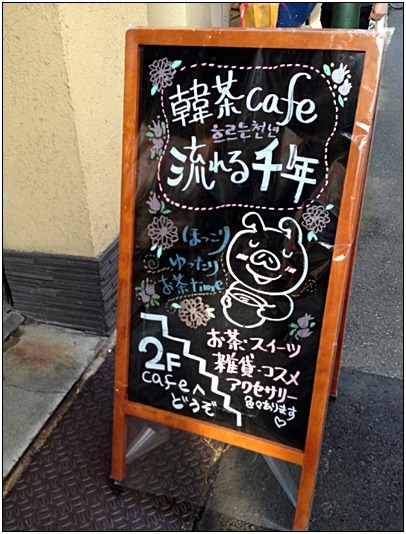 韓茶cafe
흐르는천년
流れる千年
ほっこり
ゆったり
お茶time
お茶・スイーツ
雑貨・コスメ
アクセサリー
色々あります
2F
cafeへ
どうぞ